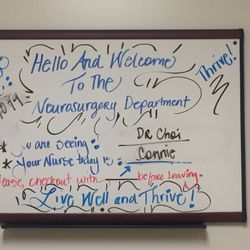 Hello And Welcome
To The
Neurasurgery Department
Thrive!
* u are seeing: DR Choi
* Your Nurse today is: Connie
ease, checkout with ____ before leaving.
Live Well and Thrive!